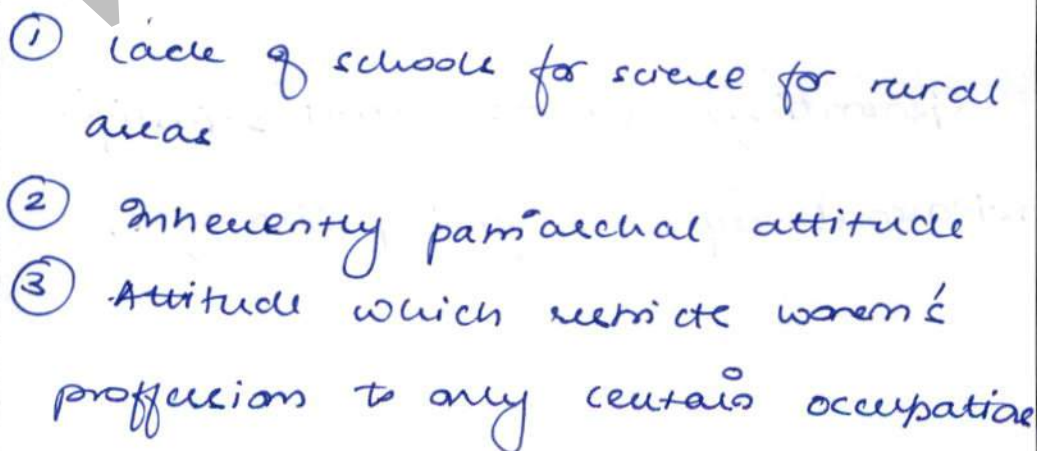 ① Lack of schools for science for rural
areas
② Inherently patriarchal attitude
③ Attitude which restricts women's
proffession to only certain occupations